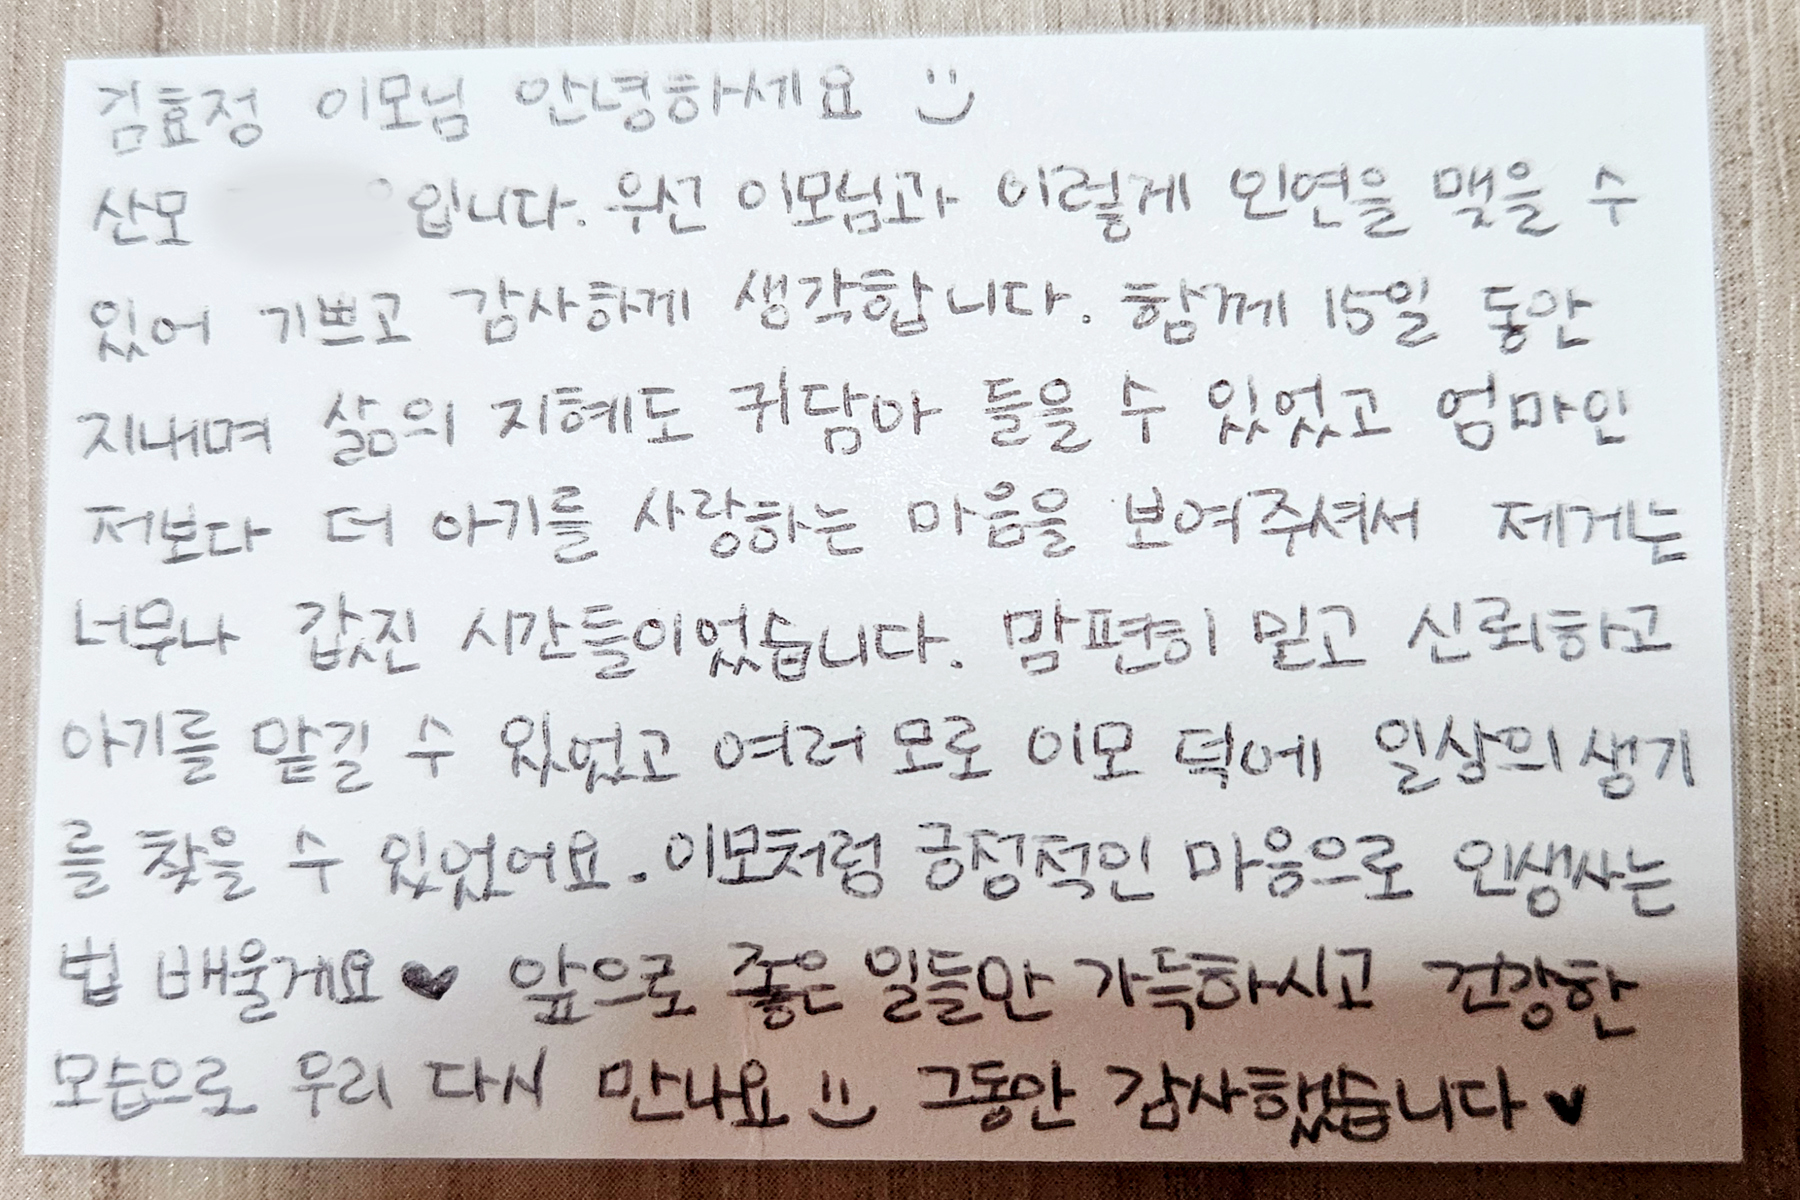 김효정 이모님 안녕하세요 :)
산모 입니다. 우선 이모님과 이렇게 인연을 맺을 수
있어 기쁘고 감사하게 생각합니다. 함께 15일 동안
지내며 삶의 지혜도 귀담아 들을 수 있었고 엄마인
저보다 더 아기를 사랑하는 마음을 보여주셔서 제게는
너무나 값진 시간들이었습니다. 맘편히 믿고 신뢰하고
아기를 맡길 수 있었고 여러모로 이모 덕에 일상의 생기
를 찾을 수 있었어요. 이모처럼 긍정적인 마음으로 인생사는
법 배울게요 ♥ 앞으로 좋은 일들만 가득하시고 건강한
모습으로 우리 다시 만나요 :) 그동안 감사했습니다 ♥